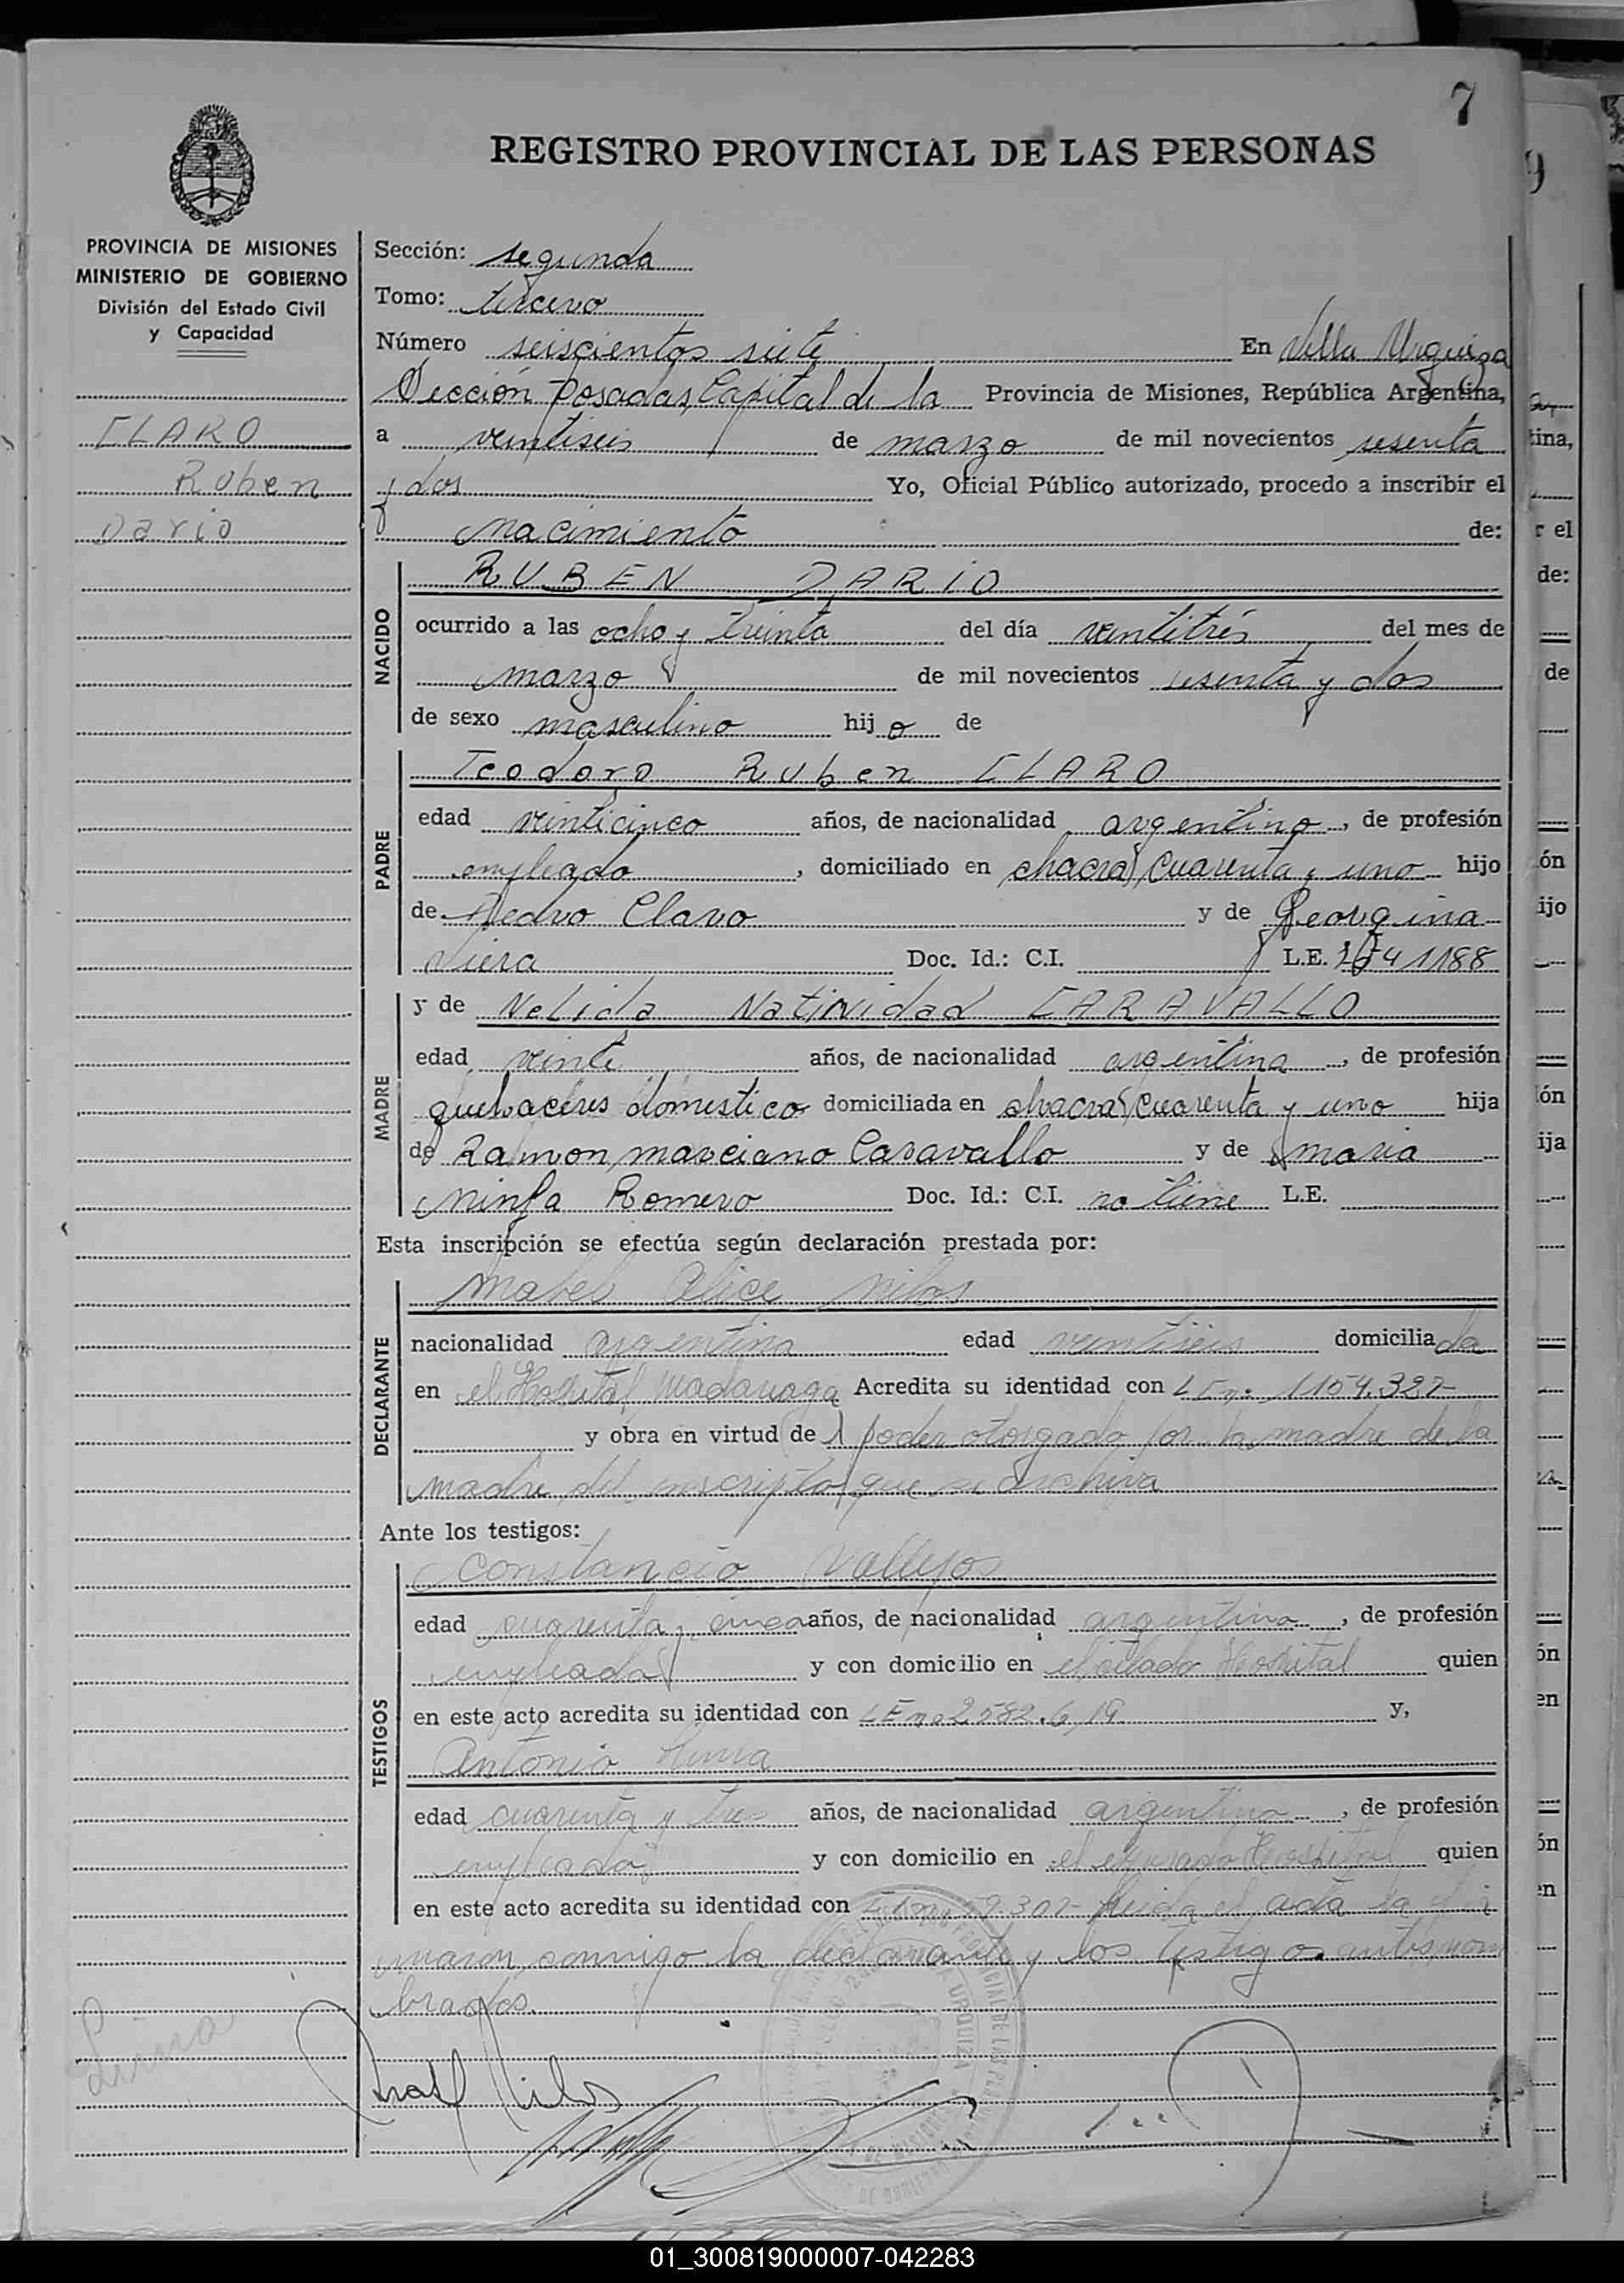 7
REGISTRO PROVINCIAL DE LAS PERSONAS
PROVINCIA DE MISIONES
MINISTERIO DE GOBIERNO
División del Estado Civil
y Capacidad
CLARO
Ruben
Dario
Sección: segunda
Tomo: tercero
Número seiscientos siete En Villa Urquiza
Sección Posadas, Capital de la Provincia de Misiones, República Argentina,
a veintiseis de marzo de mil novecientos sesenta
y dos Yo, Oficial Público autorizado, procedo a inscribir el
nacimiento de:
NACIDO
RUBEN DARIO
ocurrido a las ocho y treinta del día veintitrés del mes de
marzo de mil novecientos sesenta y dos
de sexo masculino hijo de
PADRE
Teodoro Ruben CLARO
edad veinticinco años, de nacionalidad argentino, de profesión
empleado, domiciliado en chacra cuarenta y uno hijo
de Pedro Claro y de Georgina
Viera Doc. Id.: C.I. L.E.
MADRE
y de Nelida Natividad CARAVALLO
edad veinte años, de nacionalidad argentina, de profesión
quehaceres domestico domiciliada en chacra cuarenta y uno hija
de Ramon marciano Caravallo y de maria
Ninfa Romero Doc. Id.: C.I. no tiene L.E.
Esta inscripción se efectúa según declaración prestada por:
DECLARANTE
Mabel Alice
nacionalidad argentina edad veintiseis domiciliada
en el Hospital Madariaga Acredita su identidad con L E nº 1154.327
y obra en virtud de poder otorgado por la madre de la
madre del inscripto que se archiva
Ante los testigos:
TESTIGOS
Constancio Vallejos
edad cuarenta y cinco años, de nacionalidad argentino, de profesión
empleado y con domicilio en el citado Hospital quien
en este acto acredita su identidad con L E nº 2582.619 y,
Antonio
edad cuarenta y tres años, de nacionalidad argentino, de profesión
empleado y con domicilio en el expresado Hospital quien
en este acto acredita su identidad con Leida el acta la
conmigo la declarante y los testigos antes nom
brados.
01_300819000007-042283